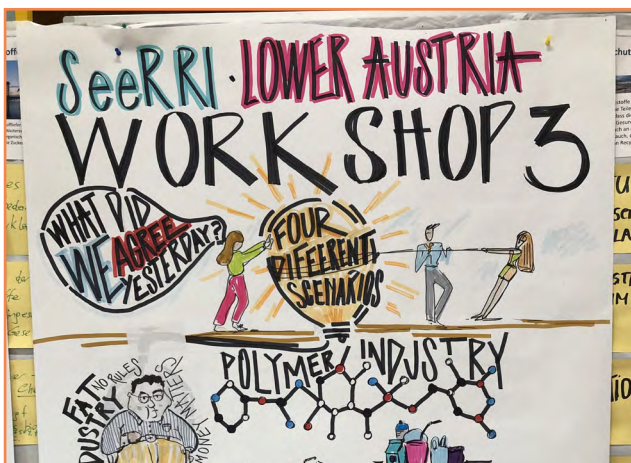 SeeRRI · LOWER AUSTRIA
WORKSHOP 3
WHAT DID
WE AGREE
YESTERDAY?
FOUR
DIFFERENT
SCENARIOS
POLYMER INDUSTRY
FAT
INDUSTRY
NO RULES
MONEY MATTERS